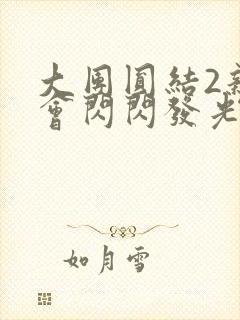 大團圓結2新
會閃閃發光
如月雪